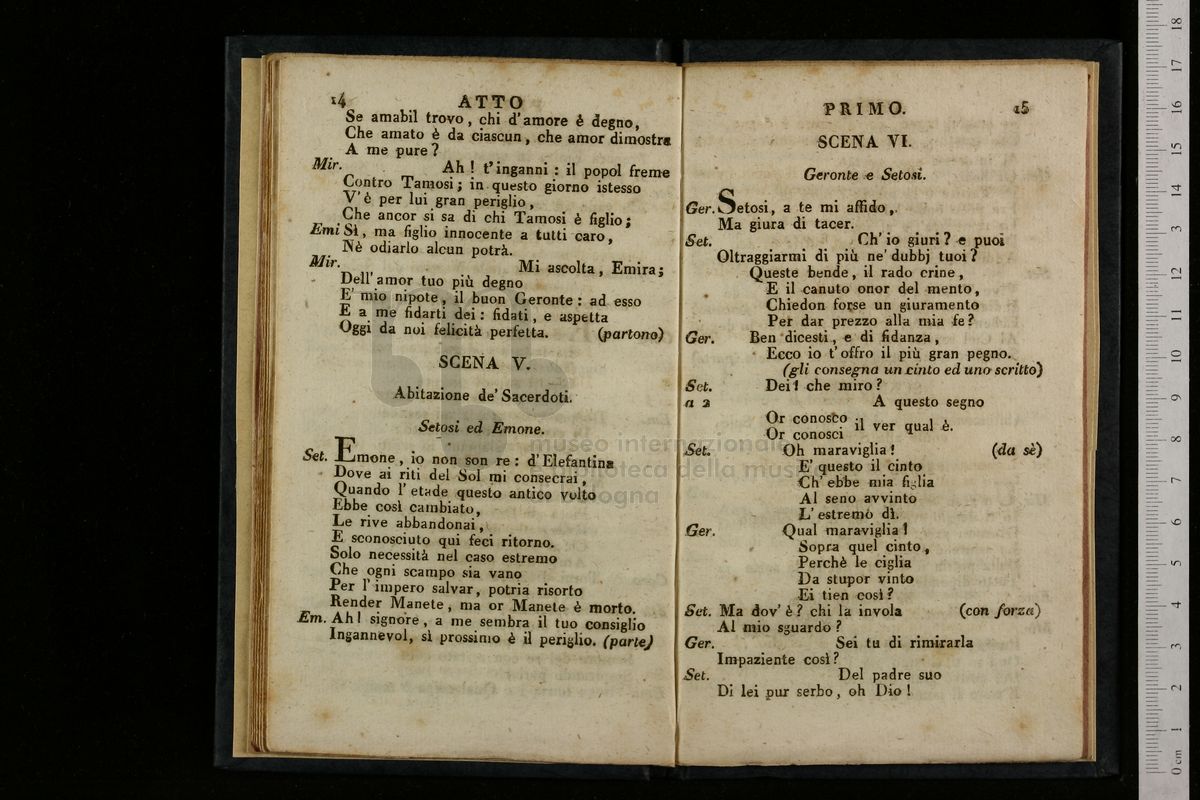 14 ATTO
Se amabil trovo, chi d'amore è degno,
Che amato è da ciascun, che amor dimostra
A me pure?
Mir. Ah! t'inganni: il popol freme
Contro Tamosi; in questo giorno istesso
V'è per lui gran periglio,
Che ancor si sa di chi Tamosi è figlio;
Emi Sì, ma figlio innocente a tutti caro,
Nè odiarlo alcun potrà.
Mir. Mi ascolta, Emira;
Dell'amor tuo più degno
E' mio nipote, il buon Geronte: ad esso
E a me fidarti dei: fidati, e aspetta
Oggi da noi felicità perfetta. (partono)
SCENA V.
Abitazione de' Sacerdoti.
Setosi ed Emone.
Set. Emone, io non son re: d'Elefantina
Dove ai riti del Sol mi consecrai,
Quando l'etade questo antico volto
Ebbe così cambiato,
Le rive abbandonai,
E sconosciuto qui feci ritorno.
Solo necessità nel caso estremo
Che ogni scampo sia vano
Per l'impero salvar, potria risorto
Render Manete, ma or Manete è morto.
Em. Ah! signore, a me sembra il tuo consiglio
Ingannevol, sì prossimo è il periglio. (parte)
PRIMO. 15
SCENA VI.
Geronte e Setosi.
Ger. Setosi, a te mi affido,
Ma giura di tacer.
Set. Ch'io giuri? e puoi
Oltraggiarmi di più ne' dubbj tuoi?
Queste bende, il rado crine,
E il canuto onor del mento,
Chiedon forse un giuramento
Per dar prezzo alla mia fe?
Ger. Ben dicesti, e di fidanza,
Ecco io t'offro il più gran pegno.
(gli consegna un cinto ed uno scritto)
Set. Dei! che miro?
a 2 A questo segno
Or conosco il ver qual è.
Or conosci
Set. Oh maraviglia! (da sè)
E' questo il cinto
Ch'ebbe mia figlia
Al seno avvinto
L'estremo dì.
Ger. Qual maraviglia!
Sopra quel cinto,
Perchè le ciglia
Da stupor vinto
Ei tien così?
Set. Ma dov'è? chi la invola (con forza)
Al mio sguardo?
Ger. Sei tu di rimirarla
Impaziente così?
Set. Del padre suo
Di lei pur serbo, oh Dio!
museo internazionale
biblioteca della musica
bologna
0 cm 1 2 3 4 5 6 7 8 9 10 11 12 13 14 15 16 17 18